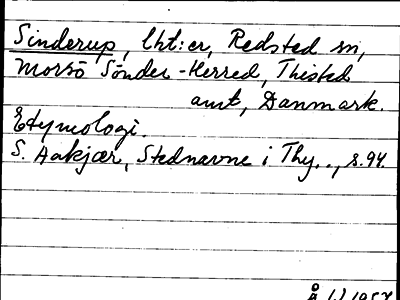 Sinderup, lht:er, Redsted sn,
Morsö Sönder-Herred, Thisted
amt, Danmark.
Etymologi.
S. Aakjær, Stednavne i Thy.., s. 94.